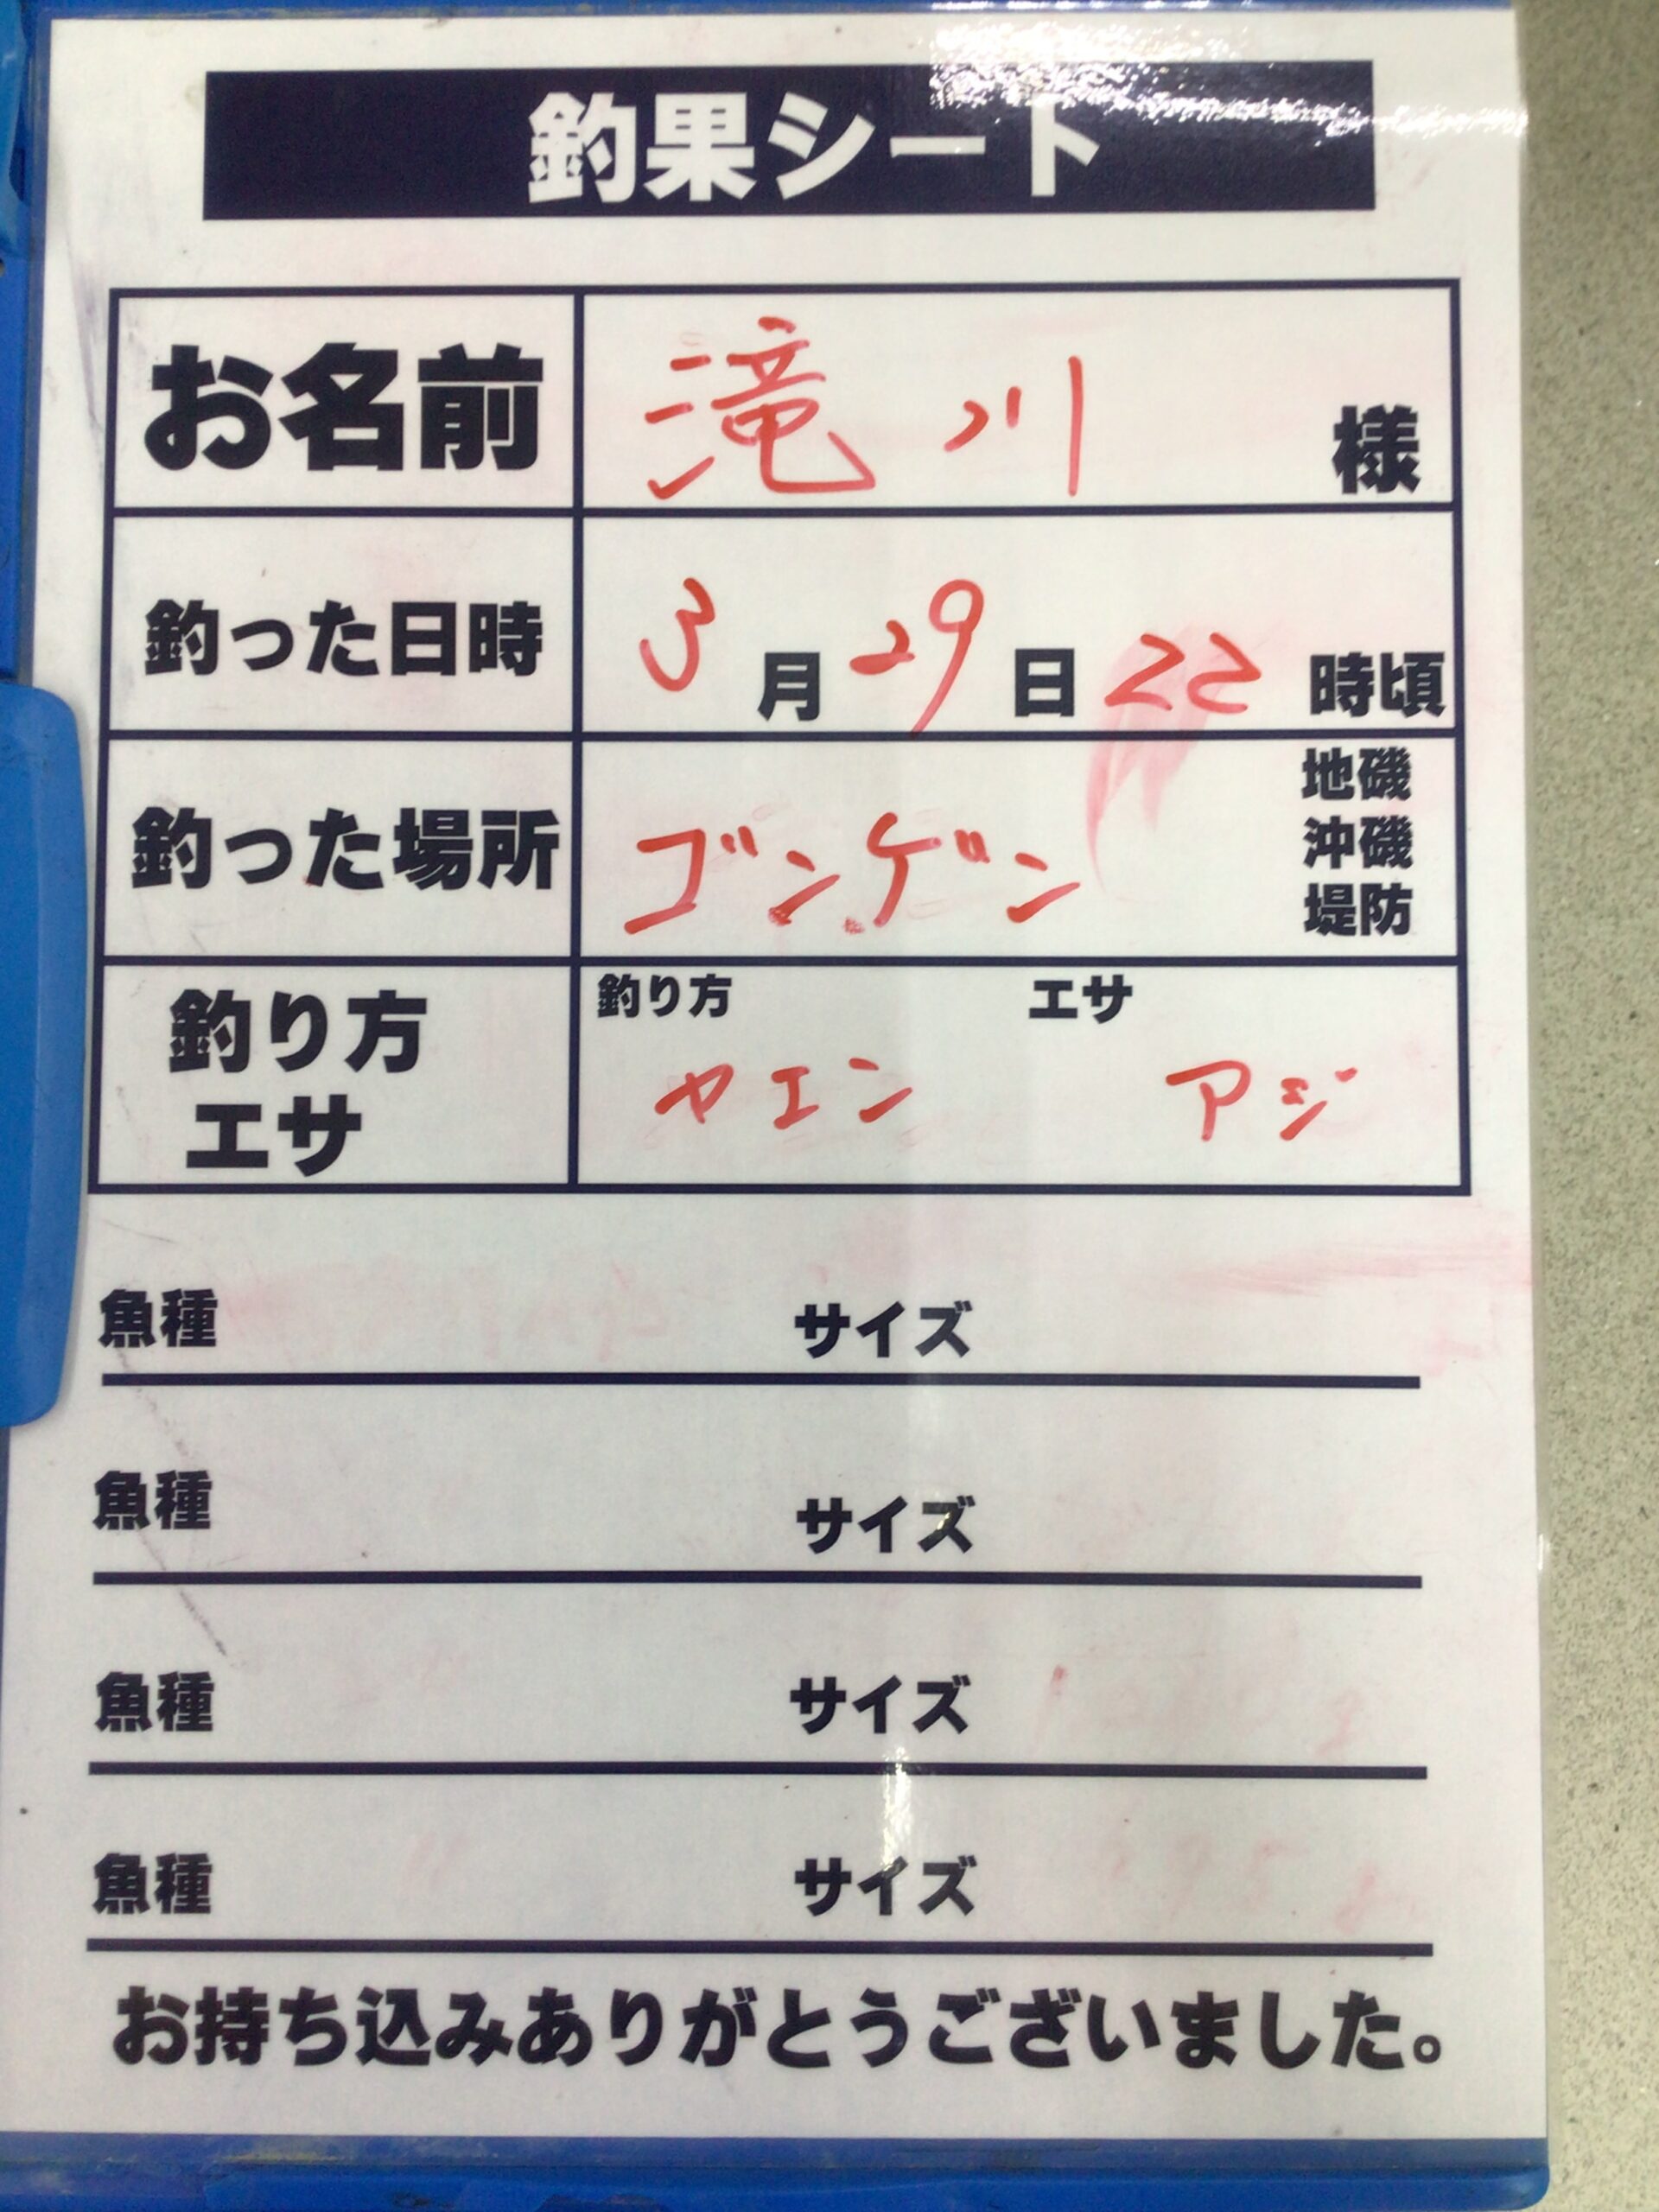 釣果シート
お名前 滝川 様
釣った日時 3月29日22時頃
釣った場所 ゴンゲン 地磯
沖磯
堤防
釣り方 エサ
釣り方 ヤエン エサ アジ
魚種 サイズ
魚種 サイズ
魚種 サイズ
魚種 サイズ
お持ち込みありがとうございました。